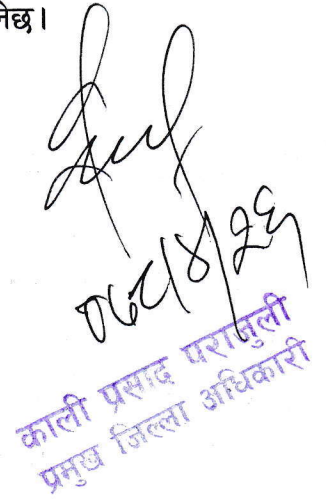 नेछ।
०७८/४/२६
काली प्रसाद पराजुली
प्रमुख जिल्ला अधिकारी